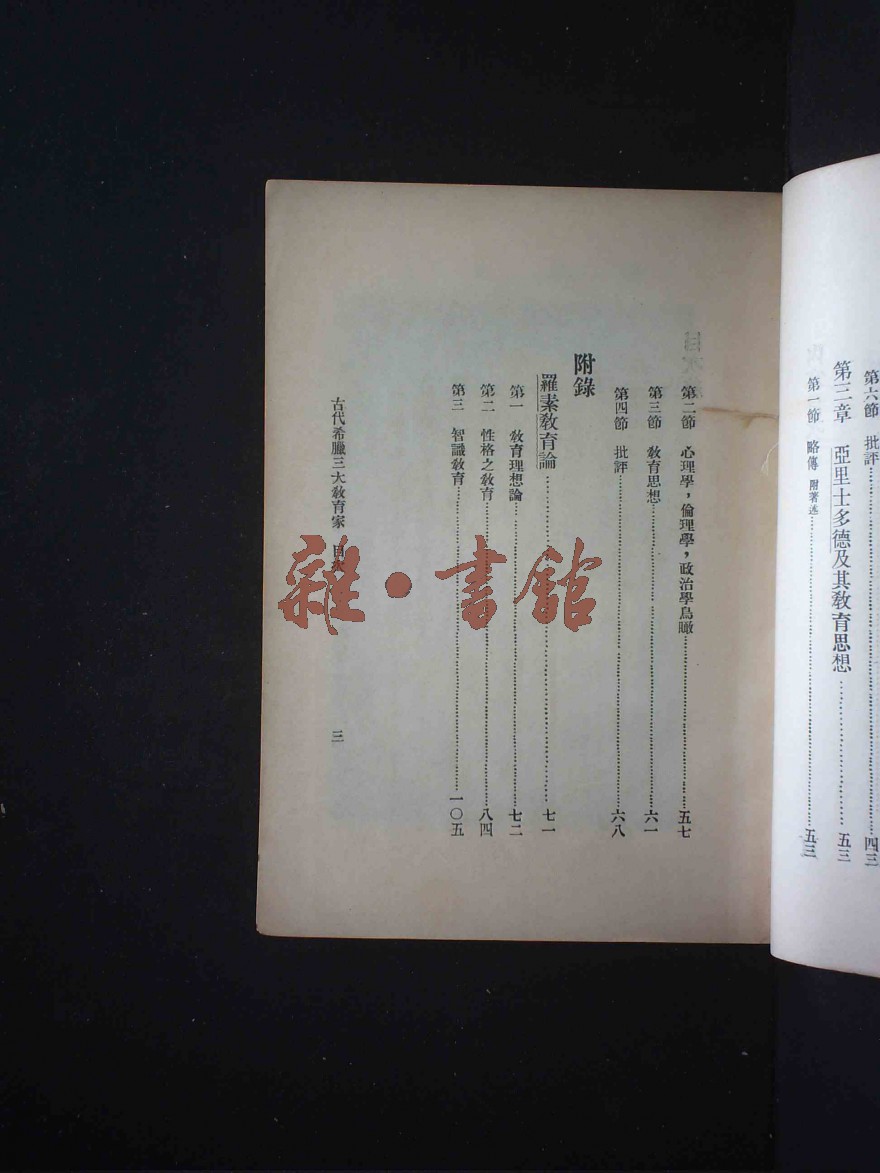 第六節 批評……四三
第三章 亞里士多德及其教育思想……五三
第一節 略傳 附著述……五三
第二節 心理學，倫理學，政治學鳥瞰……五七
第三節 教育思想……六一
第四節 批評……六八
附錄
羅素教育論……七一
第一 教育理想論……七二
第二 性格之教育……八四
第三 智識教育……一〇五
古代希臘三大教育家 目次
三
雜·書館